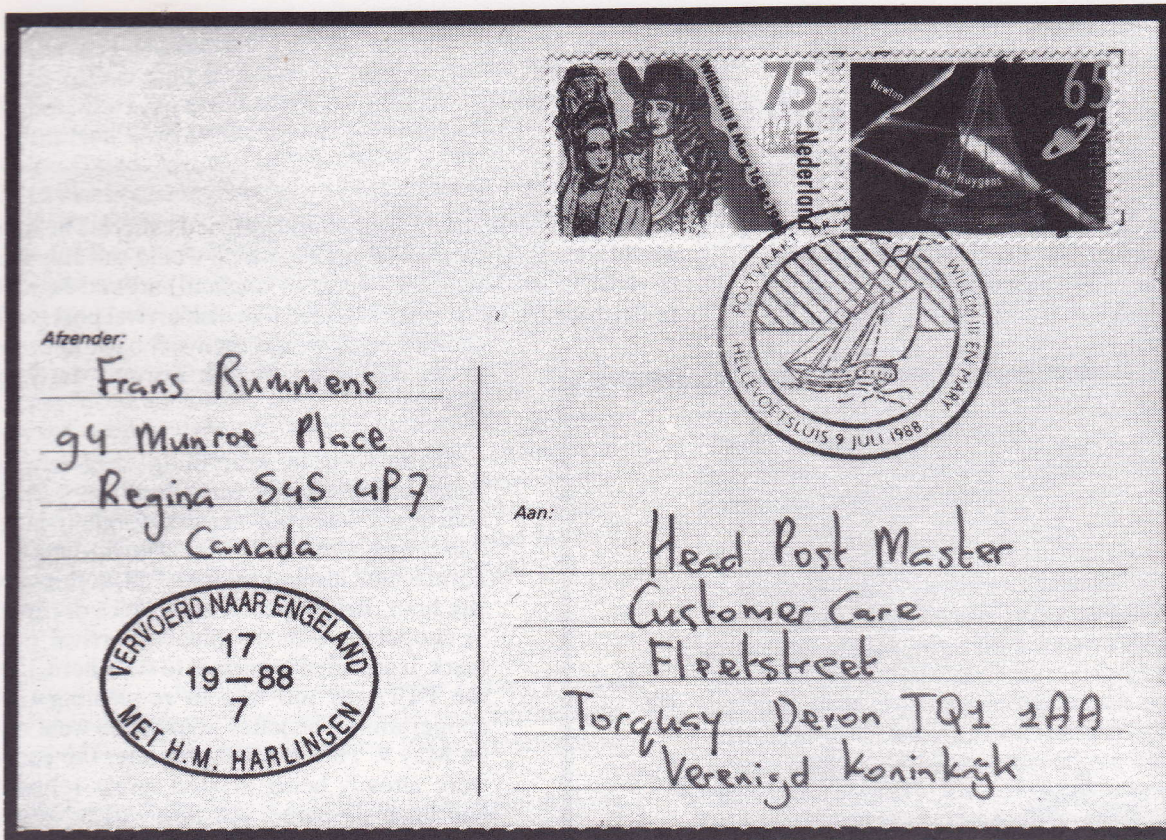 75
Nederland
William III & Mary 1688-19
65
Newton
Chr. Huygens
POSTVAART
WILLEM III EN MARY
HELLEVOETSLUIS 9 JULI 1988
Afzender:
Frans Rummens
94 Munroe Place
Regina S4S 4P7
Canada
VERVOERD NAAR ENGELAND
17
19–88
7
MET H.M. HARLINGEN
Aan:
Head Post Master
Customer Care
Fleetstreet
Torquay Devon TQ1 1AA
Verenigd Koninkrijk